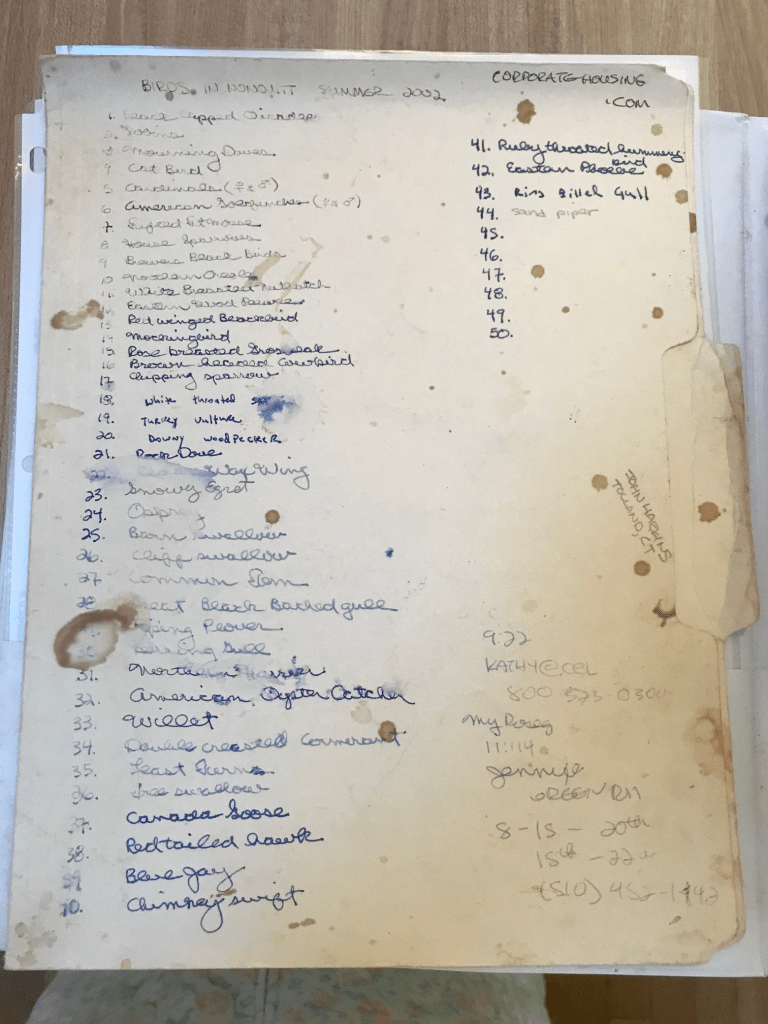 BIRDS IN NONQUITT SUMMER 2002
CORPORATE HOUSING
.COM
1. Black Capped Chickadee
2. Robins
3. Mourning Doves
4 Cat Bird
5 Cardinals (♀ & ♂)
6 American Goldfinches (♀ & ♂)
7. Tufted Titmouse
8 House Sparrows
9 Black Birds
10 Northern Oriole
11. White Breasted Nuthatch
12 Eastern Wood Pewee
13. Red winged Blackbird
14 Mockingbird
15. Rose breasted Grosbeak
16 Brown headed Cowbird
17. Chipping sparrow
18. White throated
19. Turkey Vulture
20. Downy woodpecker
21. Rock Dove
22. Wax Wing
23. Snowy Egret
24. Osprey
25. Barn swallow
26. Cliff swallow
27 Common Tern
28 Great Black Backed gull
Piping Plover
Herring Gull
31. Northern Harrier
32. American Oyster Catcher
33. Willet
34. Double creasted Cormorant
35. Least Terns
36. Tree swallow
37. Canada Goose
38. Red tailed hawk
39 Blue Jay
40. Chimney swift
41. Ruby throated humming
bird
42. Eastern Phoebe
43. Ring Billed Gull
44. sand piper
45.
46.
47.
48.
49.
50.
JOHN
TOLLAND, CT
9:22
KATHY@CEL
800 573-0300
my
11:114
Jennife
GREEN
8-15 - 20th
15th - 22
(510) 452-1442